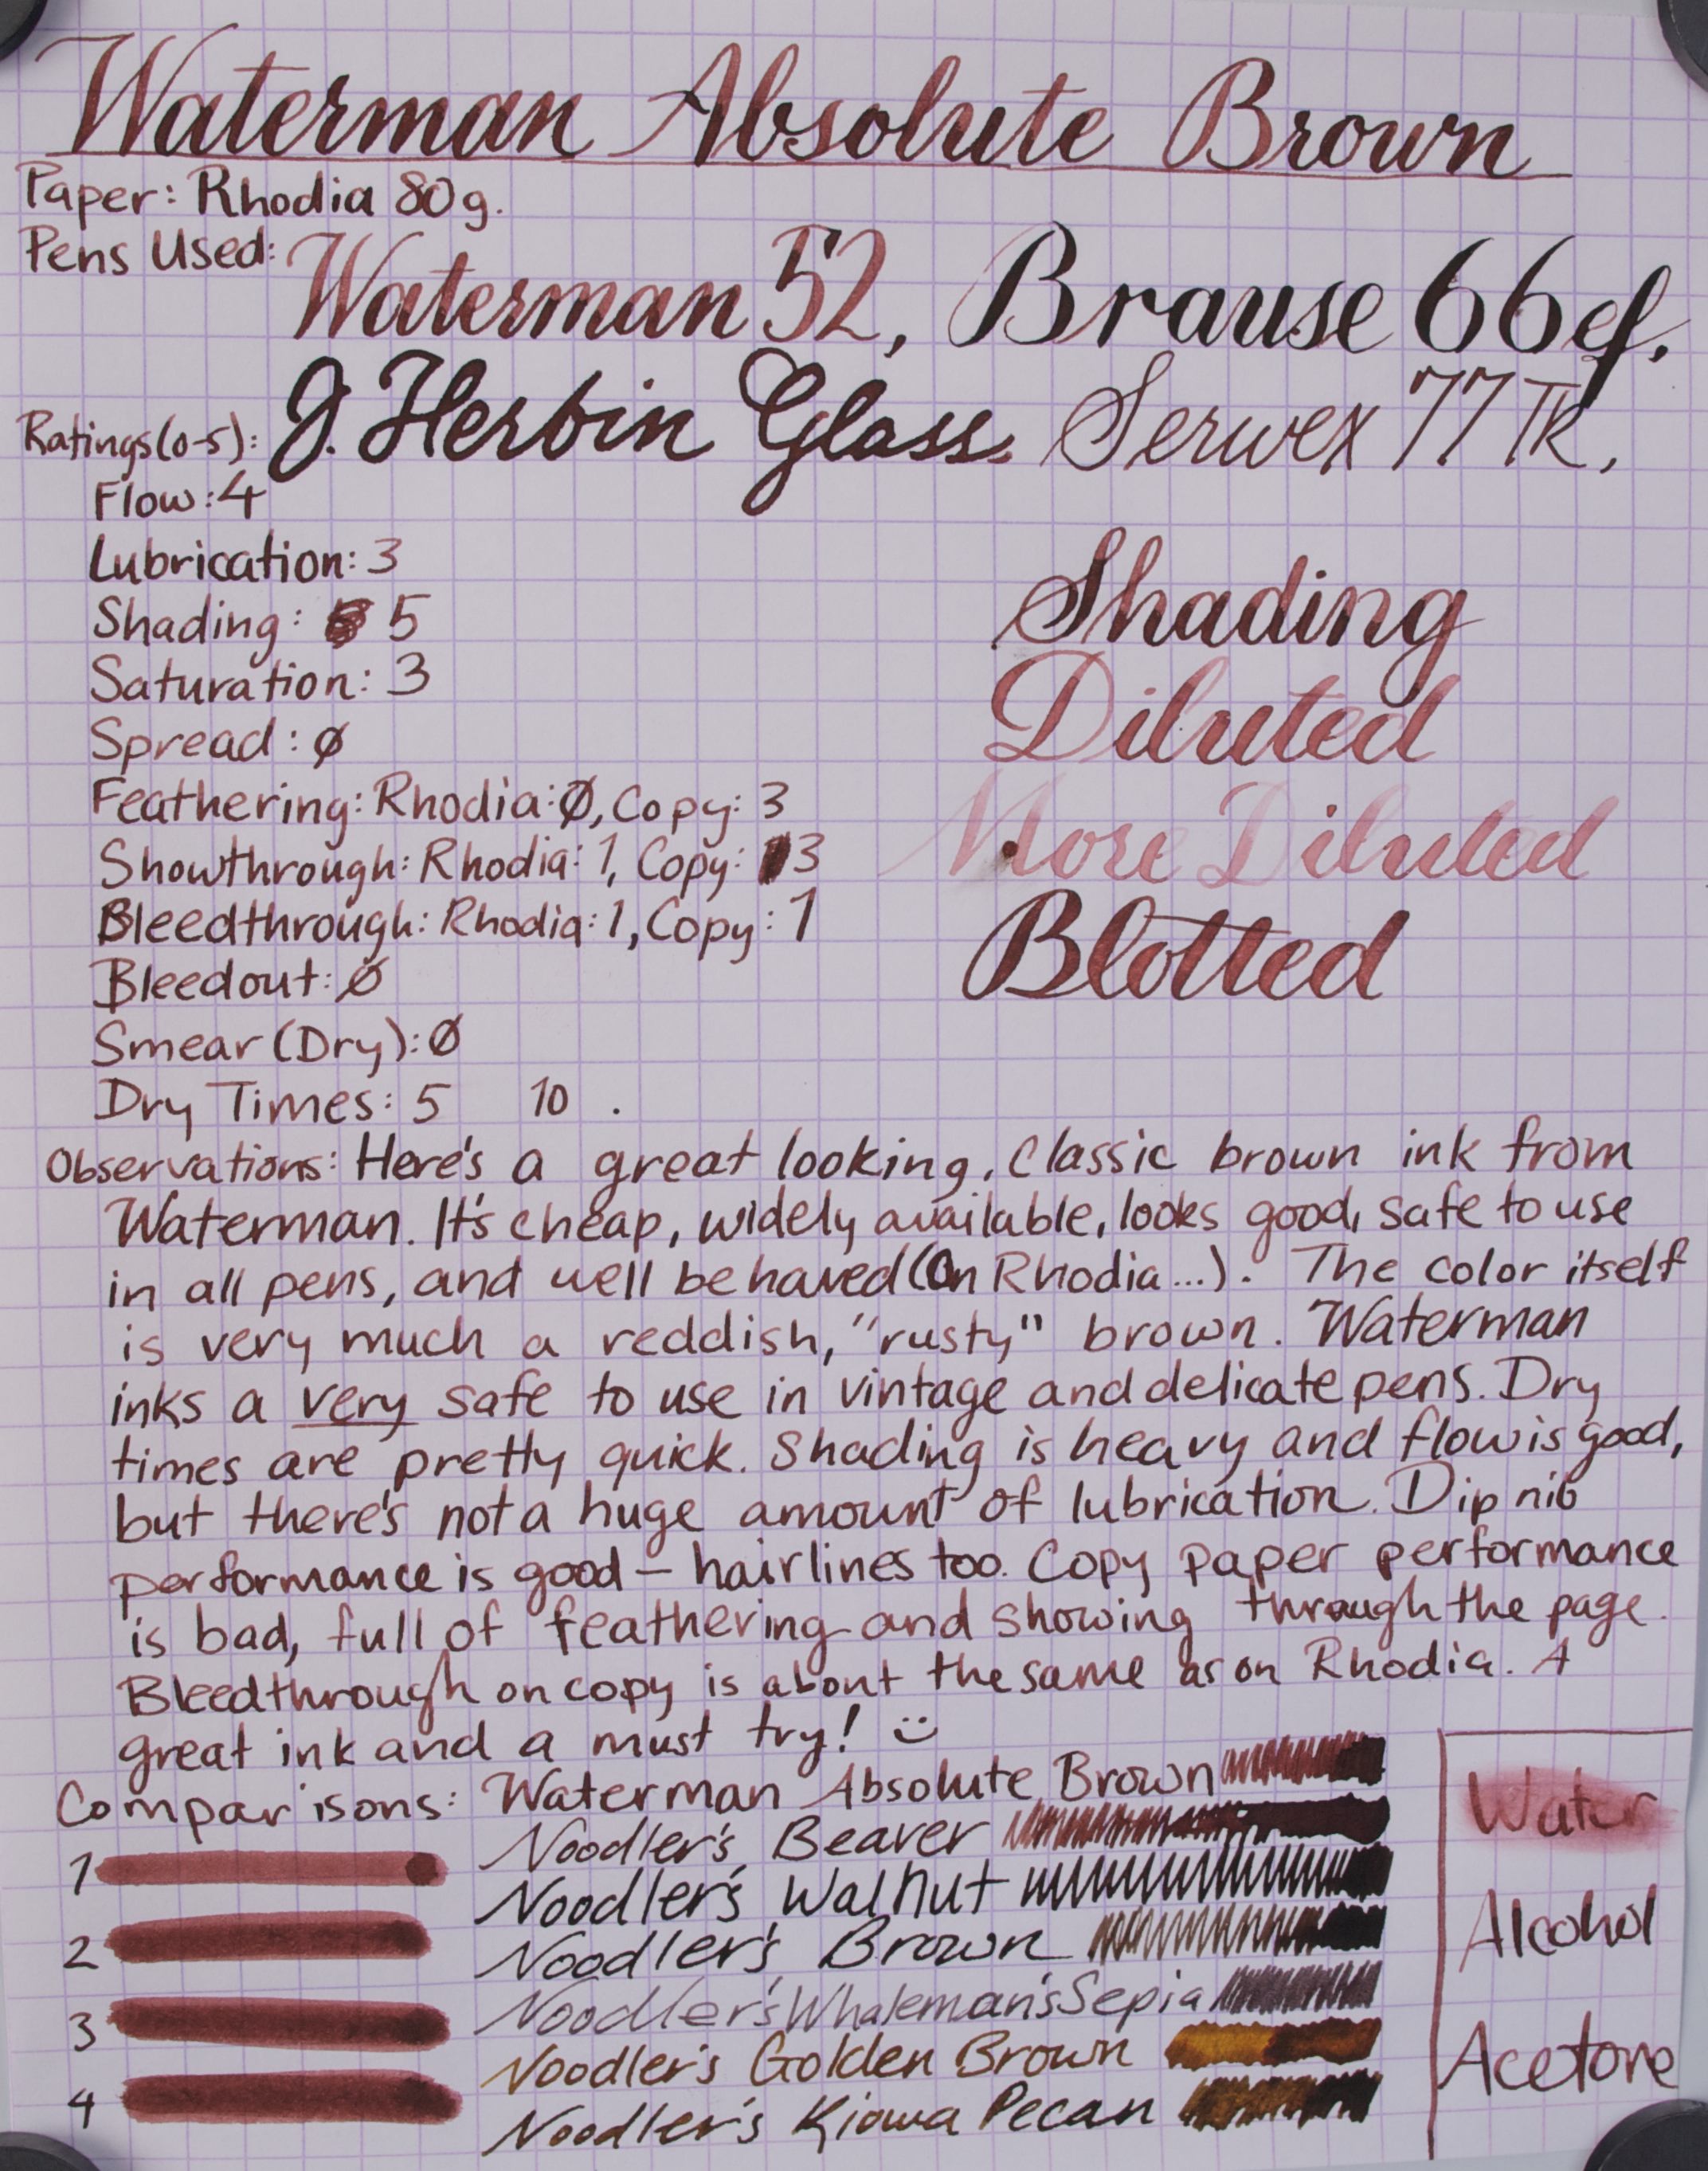 Waterman Absolute Brown
Paper: Rhodia 80g.
Pens Used:
Waterman 52, Brause 66ef.
J. Herbin Glass. Serwex 77TR.
Ratings(0-5):
Flow: 4
Lubrication: 3
Shading: 5
Saturation: 3
Spread: ø
Feathering: Rhodia: Ø, Copy: 3
Showthrough: Rhodia: 1, Copy: 3
Bleedthrough: Rhodia: 1, Copy: 1
Bleedout: Ø
Smear (Dry): Ø
Dry Times: 5 10 .
Shading
Diluted
More Diluted
Blotted
Observations: Here's a great looking, classic brown ink from
Waterman. It's cheap, widely available, looks good, safe to use
in all pens, and well behaved (On Rhodia...). The color itself
is very much a reddish, "rusty" brown. Waterman
inks a very safe to use in vintage and delicate pens. Dry
times are pretty quick. Shading is heavy and flow is good,
but there's not a huge amount of lubrication. Dip nib
performance is good – hairlines too. Copy paper performance
is bad, full of feathering and showing through the page.
Bleedthrough on copy is about the same as on Rhodia. A
great ink and a must try! :)
Comparisons: Waterman Absolute Brown
Noodler's Beaver
Noodler's Walnut
Noodler's Brown
Noodler's Whaleman's Sepia
Noodler's Golden Brown
Noodler's Kiowa Pecan
1
2
3
4
Water
Alcohol
Acetone